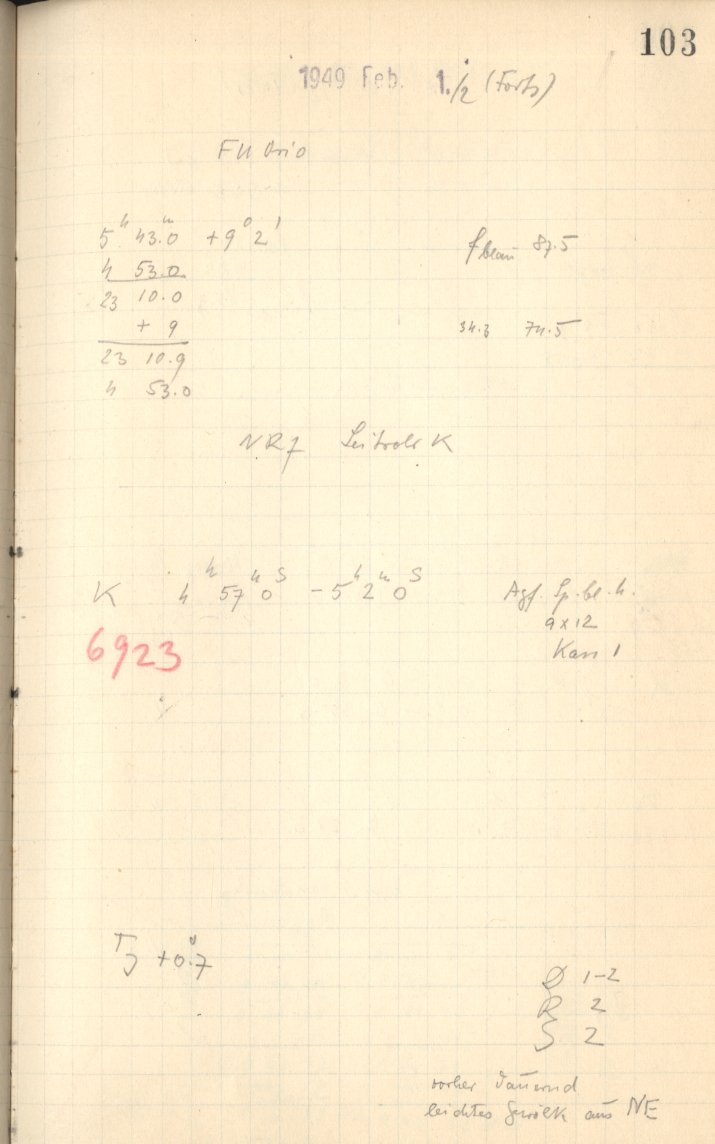 103
1949 Feb. 1./2 (Forts)
FU Orio
5ʰ 43.ᵐ0 +9° 2'
f blau 87.5
4 53.0
23 10.0
+ 9
34.3 74.5
23 10.9
4 53.0
NR7 Leitrohr K
K 4ʰ 57ᵐ 0ˢ - 5ʰ 2ᵐ 0ˢ
Agf. Sp. bl. h.
9x12
6923
Kass 1
TJ +0.°7
D 1-2
R 2
S 2
vorher dauernd
leichtes Gewölk aus NE